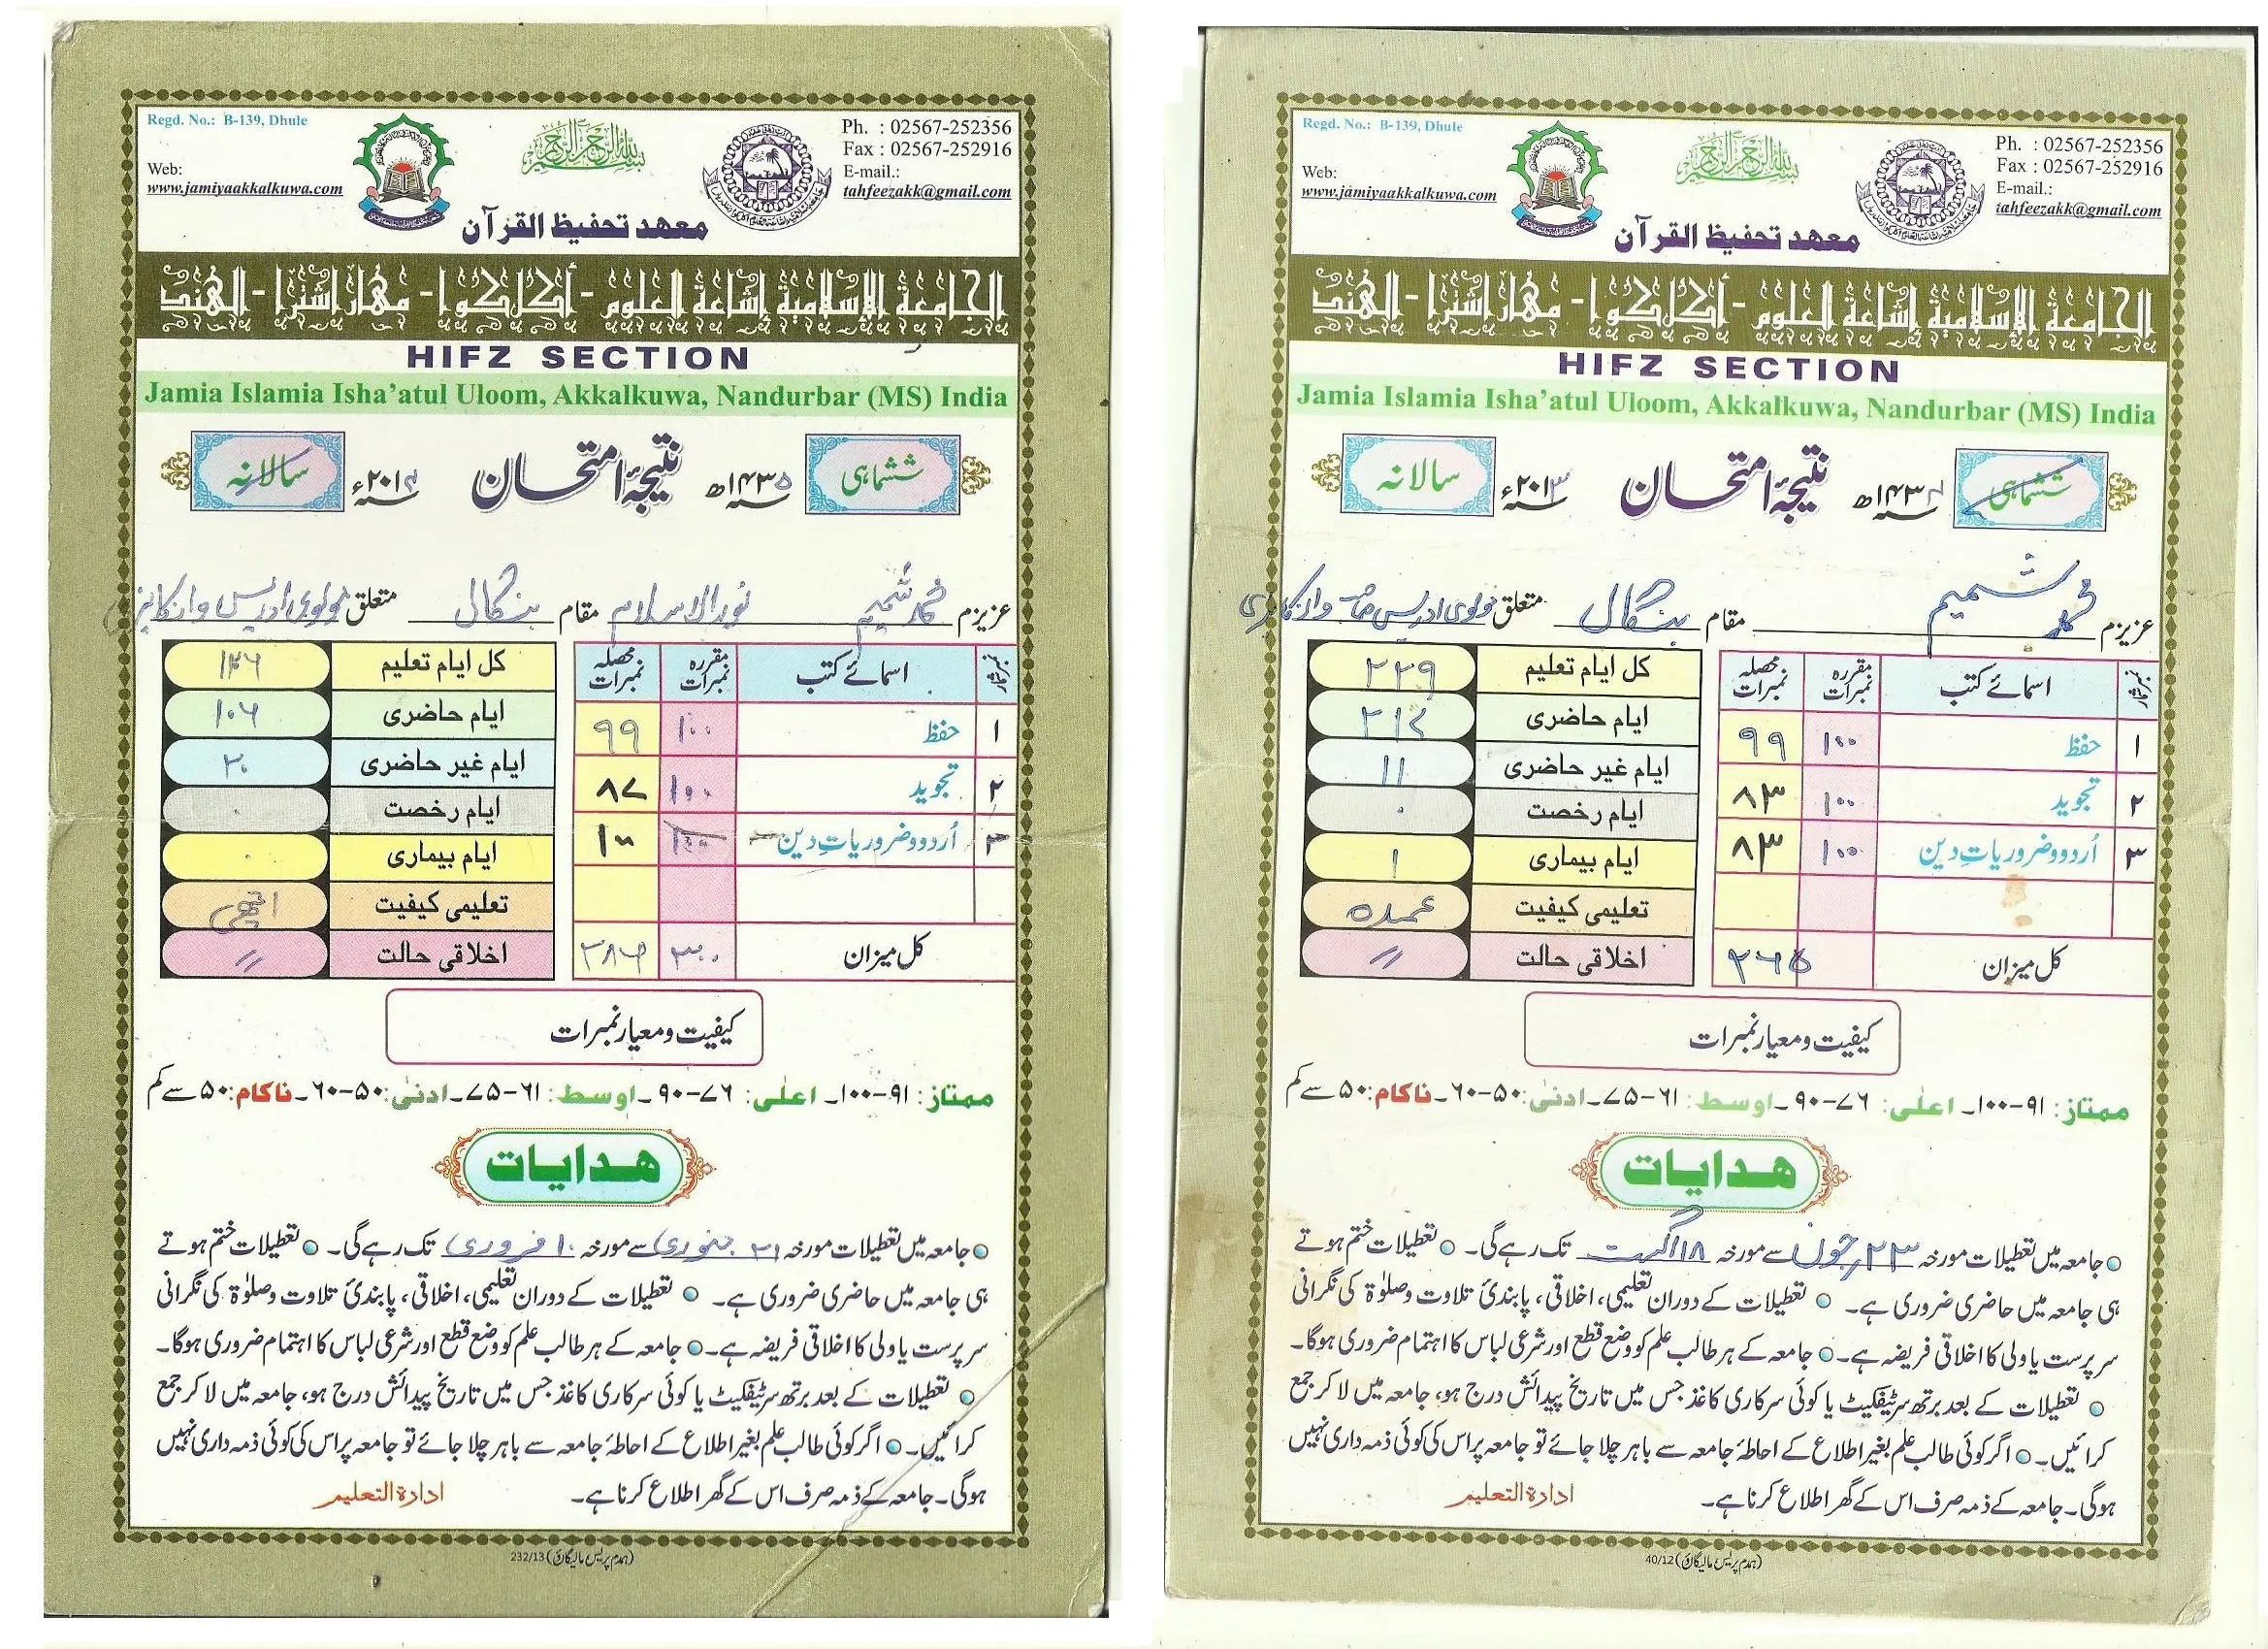 Regd. No.: B-139, Dhule
Web:
www.jamiyaakkalkuwa.com
بسم الله الرحمن الرحيم
Ph. : 02567-252356
Fax : 02567-252916
E-mail.:
tahfeezakk@gmail.com
معهد تحفيظ القرآن
الجامعة الإسلامية إشاعة العلوم - أكل كوا - مهاراشترا - الهند
HIFZ SECTION
Jamia Islamia Isha'atul Uloom, Akkalkuwa, Nandurbar (MS) India
ششماہی ۱۴۳۵ھ نتیجۂ امتحان ۲۰۱۴ء سالانہ
عزیزم محمد شمیم نور الاسلام مقام بنگال متعلق مولوی ادریس
نمبر شمار اسمائے کتب مقررہ نمبرات محصلہ نمبرات
۱ حفظ ۱۰۰ ۹۹
۲ تجوید ۱۰۰ ۸۷
۳ اُردو و ضروریاتِ دین ۱۰۰ ۱۰۰
کل میزان ۳۰۰ ۲۸۶
کل ایام تعلیم ۱۲۶
ایام حاضری ۱۰۶
ایام غیر حاضری ۲۰
ایام رخصت ۰
ایام بیماری ۰
تعلیمی کیفیت اچھی
اخلاقی حالت //
کیفیت و معیار نمبرات
ممتاز: ۹۱-۱۰۰۔ اعلٰی: ۷۶-۹۰۔ اوسط: ۶۱-۷۵۔ ادنیٰ: ۵۰-۶۰۔ ناکام: ۵۰ سے کم
هدايات
جامعہ میں تعطیلات مورخہ ۳۱ جنوری سے مورخہ ۱۰ فروری تک رہے گی۔ تعطیلات ختم ہوتے
ہی جامعہ میں حاضری ضروری ہے۔ تعطیلات کے دوران تعلیمی، اخلاقی، پابندیٔ تلاوت وصلوٰۃ کی نگرانی
سرپرست یا ولی کا اخلاقی فریضہ ہے۔ جامعہ کے ہر طالب علم کو وضع قطع اور شرعی لباس کا اہتمام ضروری ہوگا۔
تعطیلات کے بعد برتھ سرٹیفکیٹ یا کوئی سرکاری کاغذ جس میں تاریخ پیدائش درج ہو، جامعہ میں لا کر جمع
کرائیں۔ اگر کوئی طالب علم بغیر اطلاع کے احاطۂ جامعہ سے باہر چلا جائے تو جامعہ پر اس کی کوئی ذمہ داری نہیں
ہوگی۔ جامعہ کے ذمہ صرف اس کے گھر اطلاع کرنا ہے۔ ادارة التعلیم
232/13 (ہمدم پریس مالیگاؤں)
Regd. No.: B-139, Dhule
Web:
www.jamiyaakkalkuwa.com
بسم الله الرحمن الرحيم
Ph. : 02567-252356
Fax : 02567-252916
E-mail.:
tahfeezakk@gmail.com
معهد تحفيظ القرآن
الجامعة الإسلامية إشاعة العلوم - أكل كوا - مهاراشترا - الهند
HIFZ SECTION
Jamia Islamia Isha'atul Uloom, Akkalkuwa, Nandurbar (MS) India
ششماہی ۱۴۳۴ھ نتیجۂ امتحان ۲۰۱۳ء سالانہ
عزیزم محمد شمیم مقام بنگال متعلق مولوی ادریس
نمبر شمار اسمائے کتب مقررہ نمبرات محصلہ نمبرات
۱ حفظ ۱۰۰ ۹۹
۲ تجوید ۱۰۰ ۸۳
۳ اُردو و ضروریاتِ دین ۱۰۰ ۸۳
کل میزان ۲۶۵
کل ایام تعلیم ۲۲۹
ایام حاضری ۲۱۷
ایام غیر حاضری ۱۱
ایام رخصت ۰
ایام بیماری ۱
تعلیمی کیفیت عمدہ
اخلاقی حالت //
کیفیت و معیار نمبرات
ممتاز: ۹۱-۱۰۰۔ اعلٰی: ۷۶-۹۰۔ اوسط: ۶۱-۷۵۔ ادنیٰ: ۵۰-۶۰۔ ناکام: ۵۰ سے کم
هدايات
جامعہ میں تعطیلات مورخہ ۲۳ جون سے مورخہ ۱۸ اگست تک رہے گی۔ تعطیلات ختم ہوتے
ہی جامعہ میں حاضری ضروری ہے۔ تعطیلات کے دوران تعلیمی، اخلاقی، پابندیٔ تلاوت وصلوٰۃ کی نگرانی
سرپرست یا ولی کا اخلاقی فریضہ ہے۔ جامعہ کے ہر طالب علم کو وضع قطع اور شرعی لباس کا اہتمام ضروری ہوگا۔
تعطیلات کے بعد برتھ سرٹیفکیٹ یا کوئی سرکاری کاغذ جس میں تاریخ پیدائش درج ہو، جامعہ میں لا کر جمع
کرائیں۔ اگر کوئی طالب علم بغیر اطلاع کے احاطۂ جامعہ سے باہر چلا جائے تو جامعہ پر اس کی کوئی ذمہ داری نہیں
ہوگی۔ جامعہ کے ذمہ صرف اس کے گھر اطلاع کرنا ہے۔ ادارة التعلیم
40/12 (ہمدم پریس مالیگاؤں)